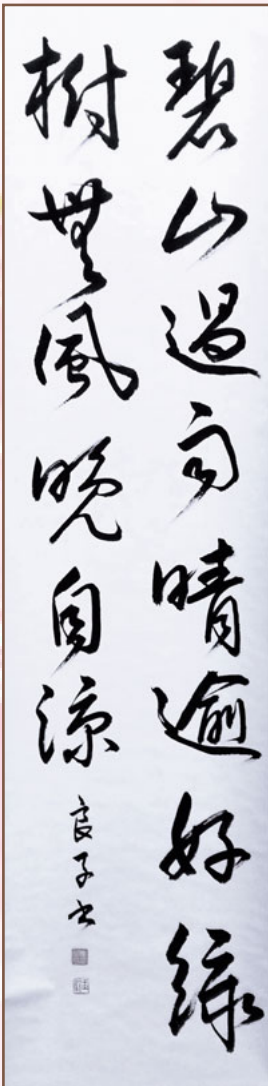 碧山過雨晴逾好緑
樹無風晩自涼良子書